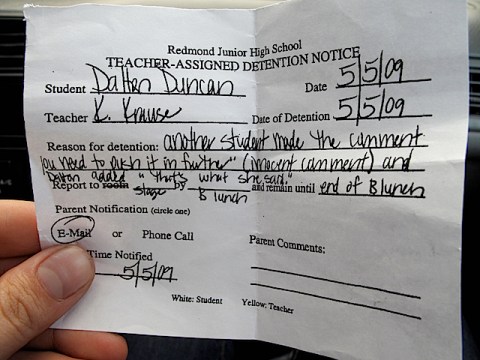 Redmond Junior High School
TEACHER-ASSIGNED DETENTION NOTICE
Student Dalton Duncan Date 5/5/09
Teacher K. Krause Date of Detention 5/5/09
Reason for detention: another student made the comment
you need to push it in further" (innocent comment) and
Dalton added "that's what she said."
Report to room stage by B lunch and remain until end of B lunch
Parent Notification (circle one)
E-Mail or Phone Call Parent Comments:
Time Notified
5/5/09
White: Student Yellow: Teacher